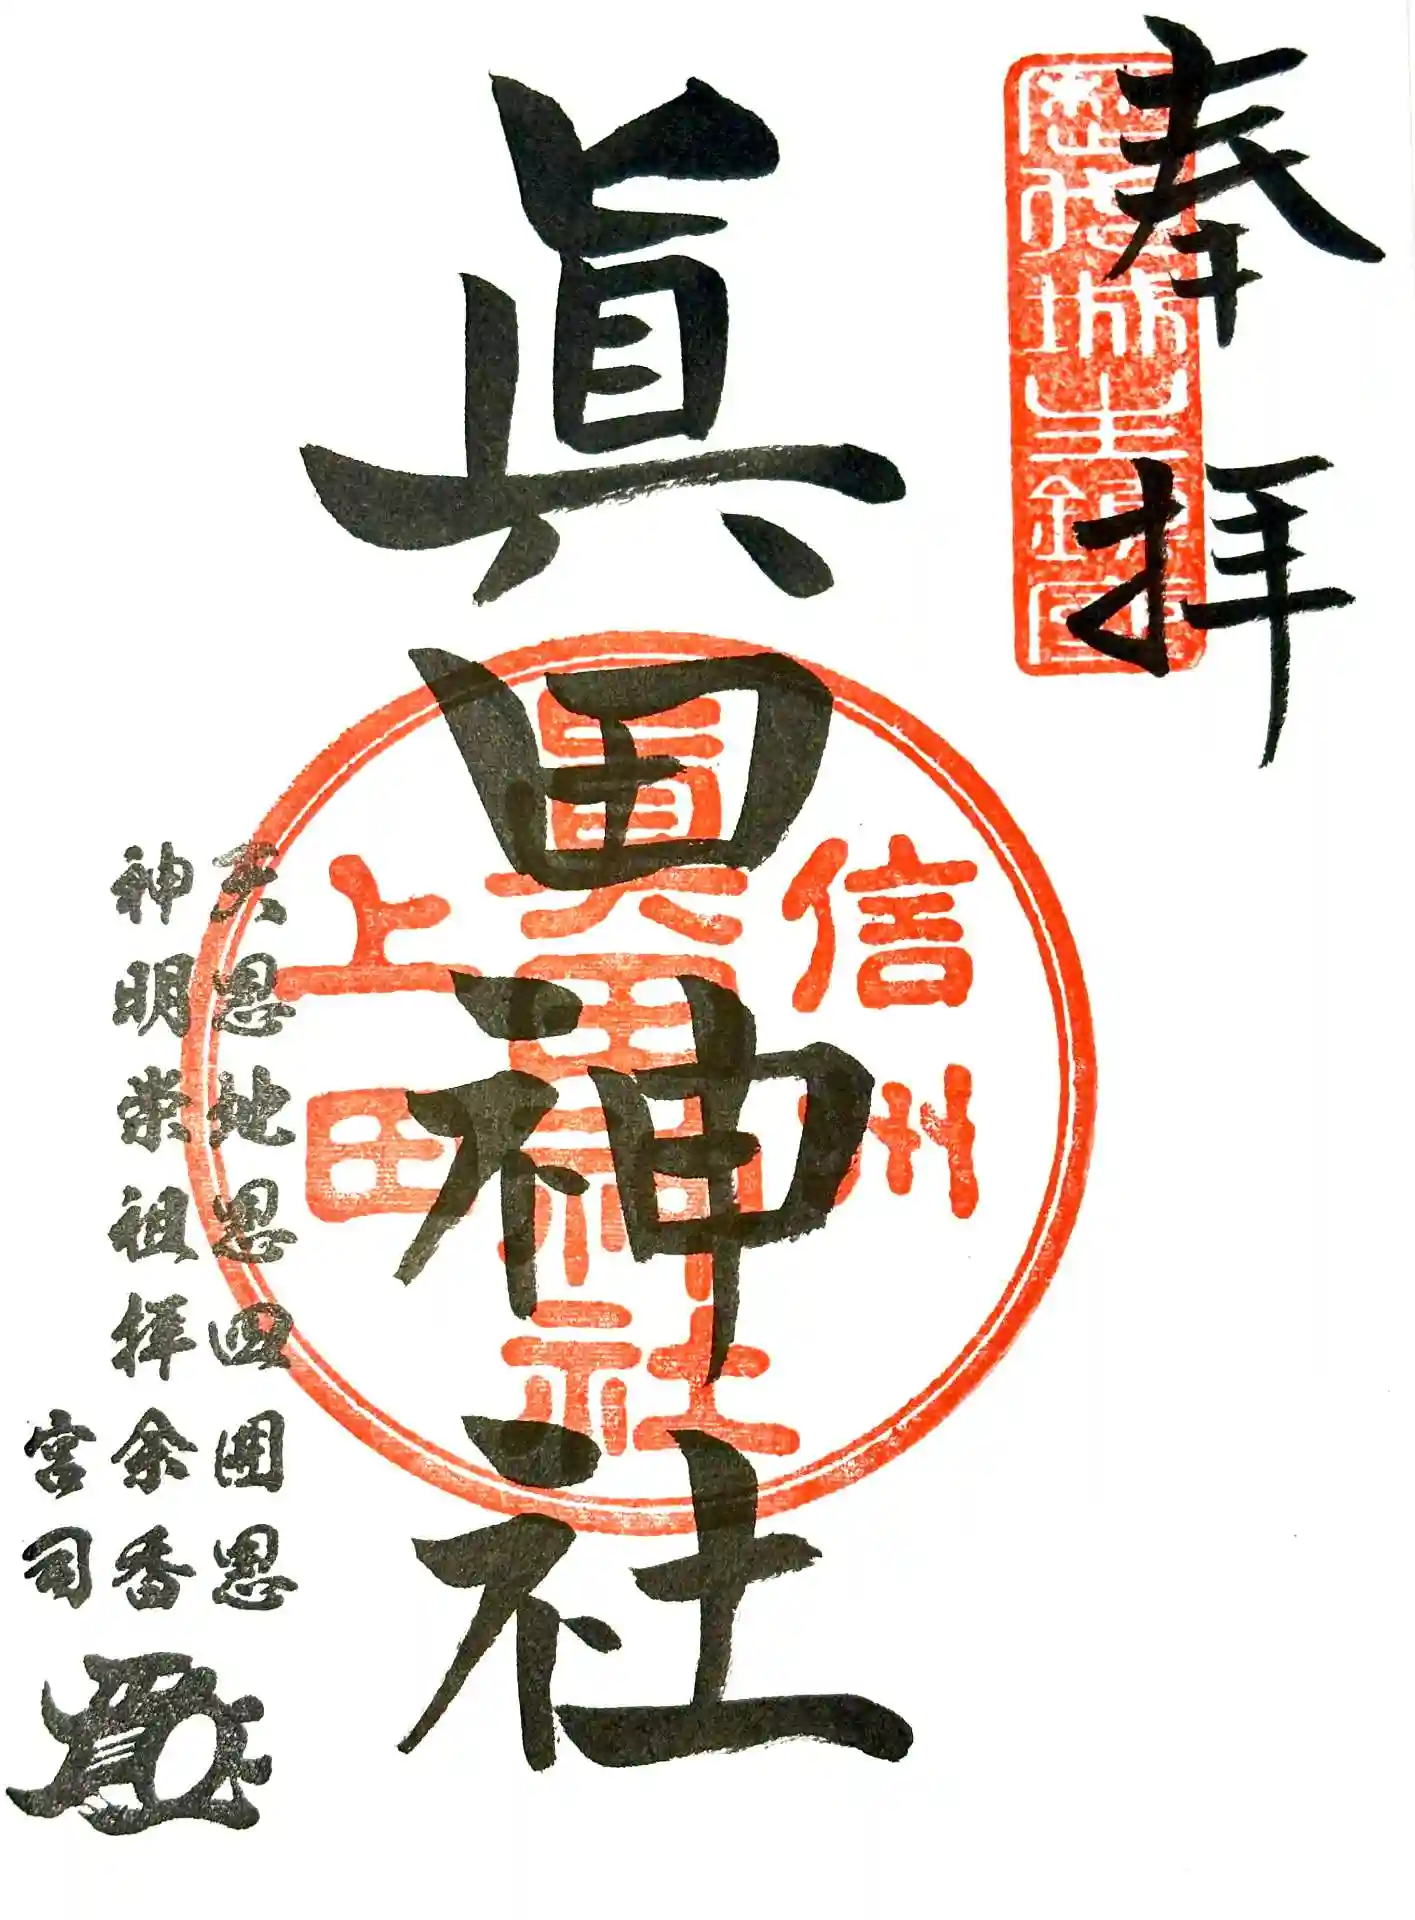 奉拝
歴代城主鎮座
眞田神社
信州
眞田神社
上田
天恩地恩四囲恩
神明崇祖拝余香
宮司